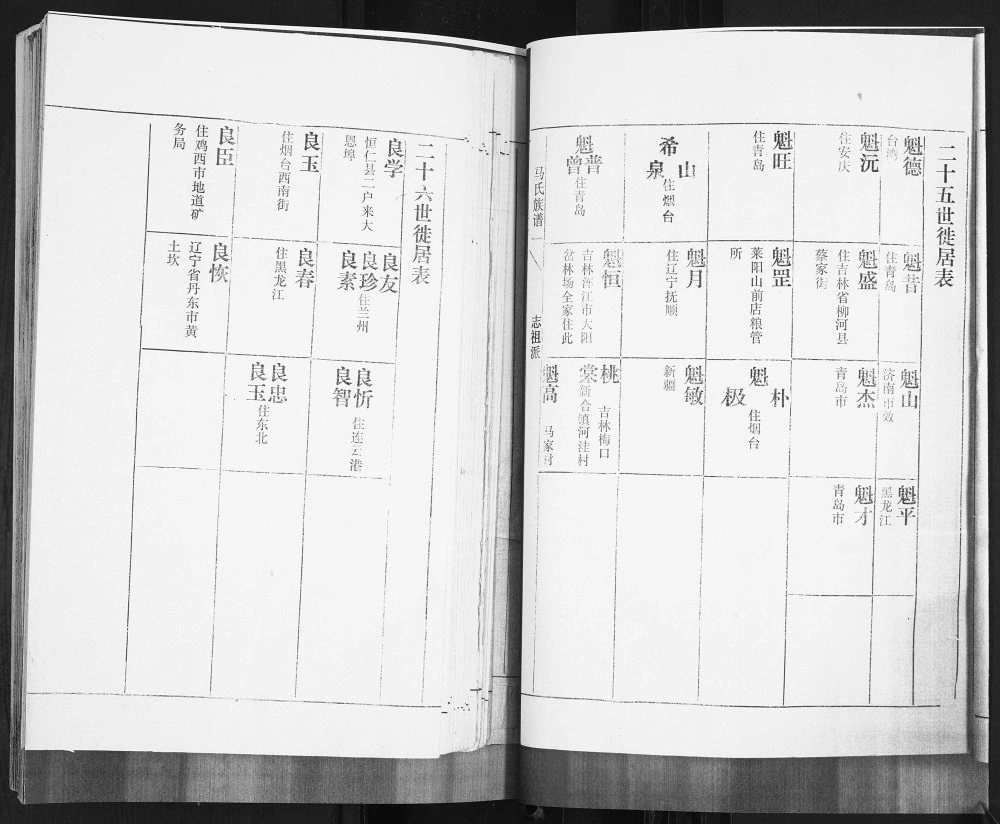 二十五世徙居表
魁德
台湾
魁昔
住青岛
魁山
济南市效
魁平
黑龙江
魁沅
住安庆
魁盛
住吉林省柳河县
蔡家街
魁杰
青岛市
魁才
青岛市
魁旺
住青岛
魁罡
莱阳山前店粮管
所
魁朴
极
住烟台
希山
泉
住烟台
魁月
住辽宁抚顺
魁敏
新疆
魁普
曾
住青岛
魁恒
吉林浑江市大阳
岔林场全家住此
桃
棠
吉林梅口
新合镇河洼村
魁高
马家村
马氏族谱
志祖派
二十六世徙居表
良学
恒仁县二户来大
恩埠
良友
良珍
良素
住兰州
良忻
良智
住连云港
良玉
住烟台西南街
良春
住黑龙江
良忠
良玉
住东北
良臣
住鸡西市地道矿
务局
良恢
辽宁省丹东市黄
土坎